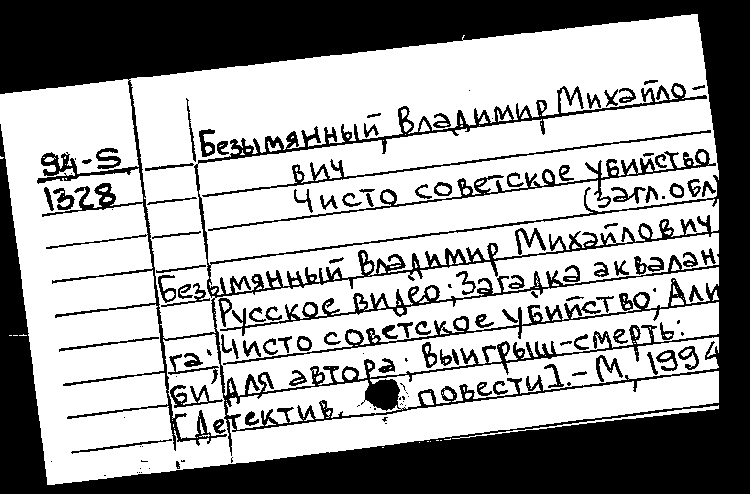 94-S
1328
Безымянный, Владимир Михайло-
вич
Чисто советское убийство
(Загл. обл)
Безымянный, Владимир Михайлович
Русское видео; Загадка аквалан-
га; Чисто советское убийство; Али
би для автора; Выигрыш-смерть:
[Детектив. повести]. - М., 1994